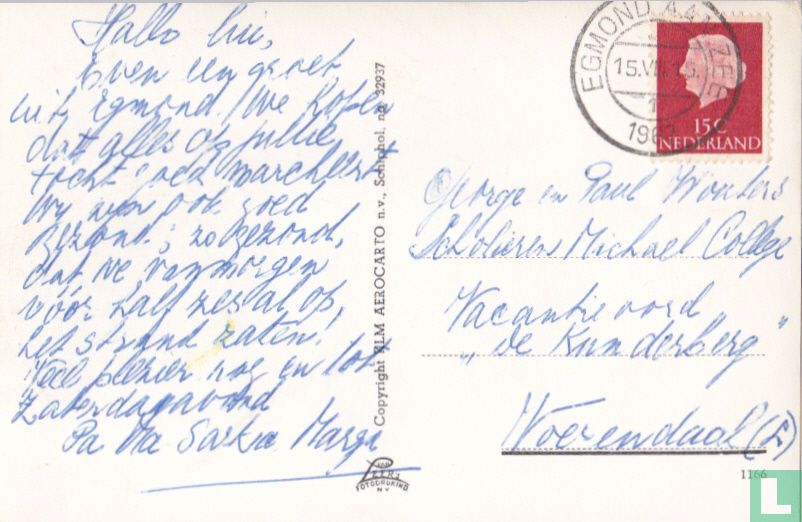 Hallo lui,
Even een groet
uit Egmond. We hopen
dat alles op jullie
tocht goed marcheert
Wij zijn ook goed
gezond; zo gezond,
dat we vanmorgen
vóór half zes al op
het strand zaten!
Veel plezier nog en tot
Zaterdagavond
Pa Ma Saskia Marga
Copyright KLM AEROCARTO n.v., Schiphol, nr. 32937
VAN LEER'S
FOTODRUKIND.
N.V.
EGMOND AAN ZEE
15.VII
1
196
15 C
NEDERLAND
George en Paul Wouters
Scholieren Michael College
Vacantieoord
"de Kunderberg"
Voerendaal (L)
1166